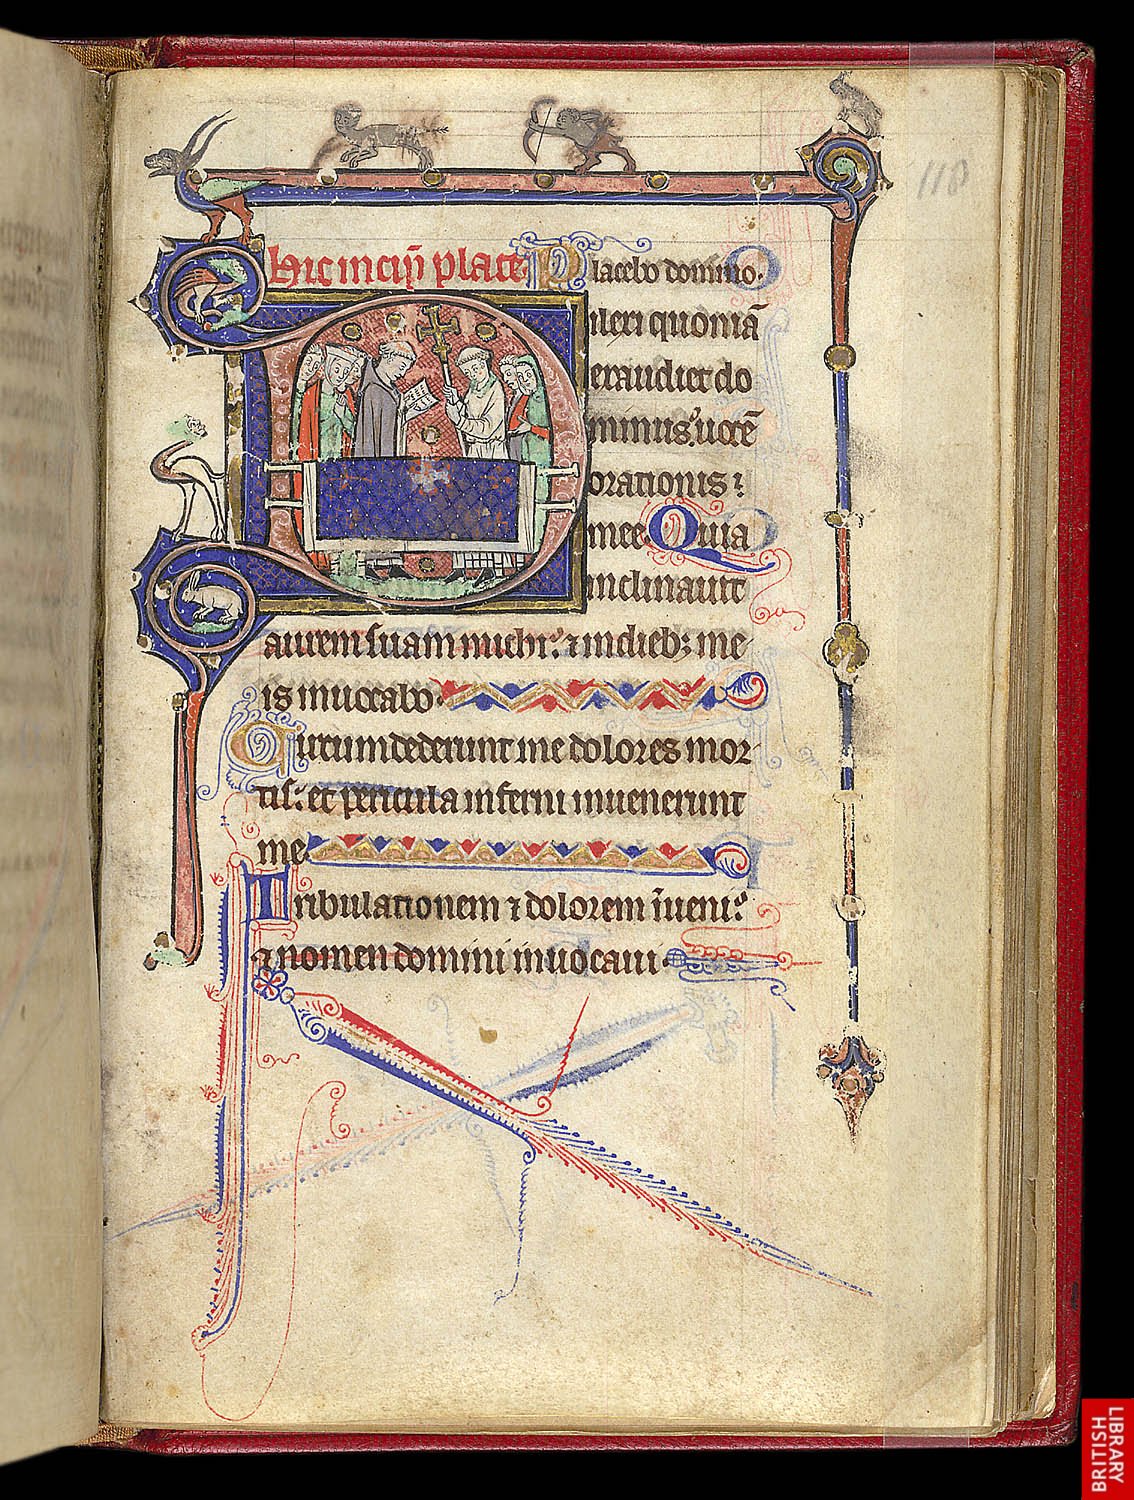 118
hic incip̄ place Placebo domino.
Dilexi quoniā
exaudiet do
minus: uocē
orationis:
mee Quia
inclinauit
aurem suam michi: ⁊ in dieb; me
is inuocabo.
Circumdederunt me dolores mor-
tis: et pericula inferni inuenerunt
me.
Tribulationem ⁊ dolorem īueni:
⁊ nomen domini inuocaui.
BRITISH
LIBRARY